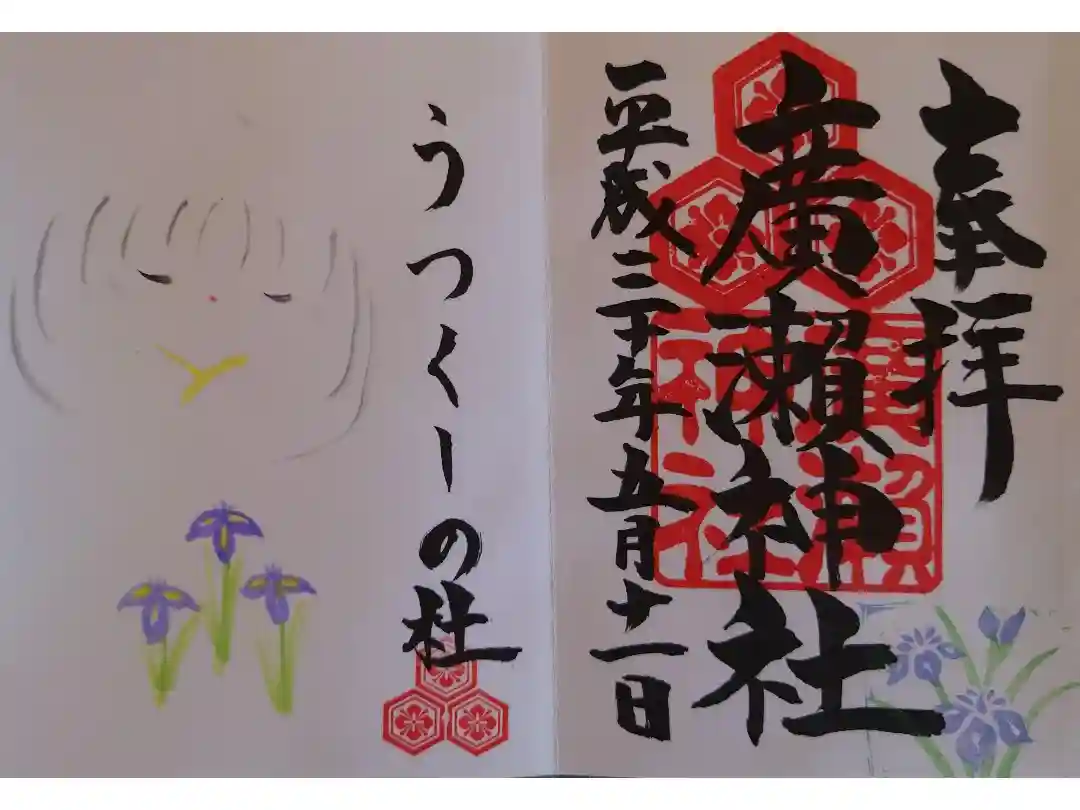 奉拝
廣瀬神社
廣瀬
神社
平成三十年五月十一日
うつくしの杜